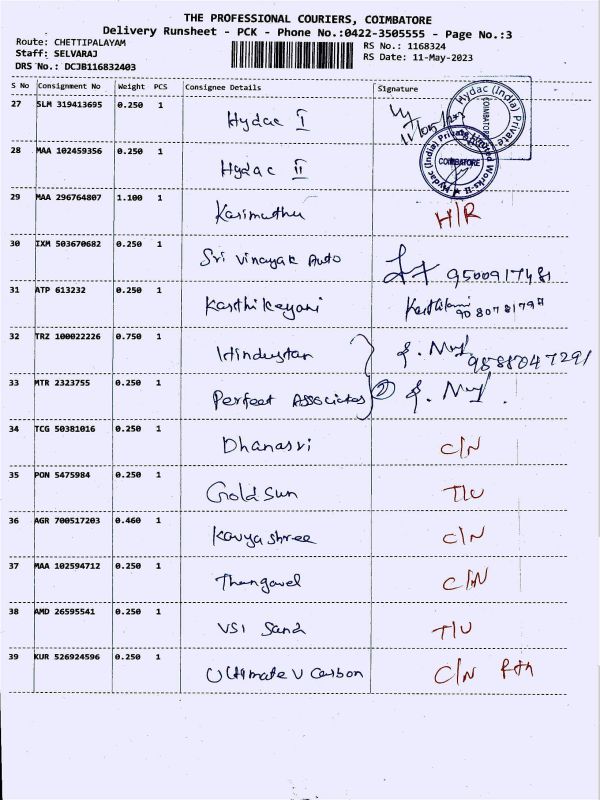 THE PROFESSIONAL COURIERS, COIMBATORE
Delivery Runsheet - PCK - Phone No.:0422-3505555 - Page No.:3
Route: CHETTIPALAYAM RS No.: 1168324
Staff: SELVARAJ RS Date: 11-May-2023
DRS No.: DCJB116832403
S No Consignment No Weight PCS Consignee Details Signature
27 SLM 319413695 0.250 1 Hydac I 11/05/23
Hydac (India) Private
COIMBATORE
28 MAA 102459356 0.250 1 Hydac II
Hydac (India) Private Limited Works-II
COIMBATORE
29 MAA 296764807 1.100 1 Karimuthu H/R
30 IXM 503670682 0.250 1 Sri Vinayak Auto 9500917481
31 ATP 613232 0.250 1 Karthikeyani
32 TRZ 100022226 0.750 1 Hindustan
33 MTR 2323755 0.250 1 Perfect Associates 2
34 TCG 50381016 0.250 1 Dhanasri C/N
35 PON 5475984 0.250 1 Gold Sun T/U
36 AGR 700517203 0.460 1 Kavya shree C/N
37 MAA 102594712 0.250 1 Thangavel C/N
38 AMD 26595541 0.250 1 VSI Sand T/U
39 KUR 526924596 0.250 1 Ultimate U Carbon C/N